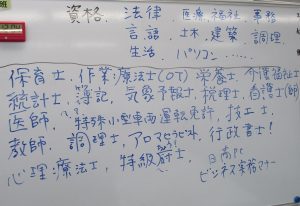 資格、法律、医療、福祉、事務
言語、土木、建築、調理、
生活、パソコン……
保育士、作業療法士(OT)栄養士、介護福祉士
統計士、簿記、気象予報士、税理士、看護士(師)
医師、特殊小型車両運転免許、技工士
教師、調理士、アロマセラピスト、行政書士!
心理療法士、特級厨士、日商PC
ビジネス実務マナー